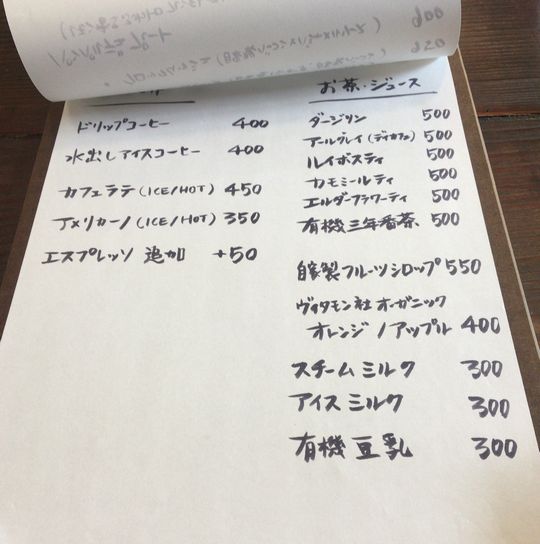 ドリップコーヒー 400
水出しアイスコーヒー 400
カフェラテ(ICE/HOT) 450
アメリカーノ(ICE/HOT) 350
エスプレッソ 追加 +50
お茶・ジュース
ダージリン 500
アールグレイ(ディカフェ) 500
ルイボスティ 500
カモミールティ 500
エルダーフラワーティ 500
有機三年番茶 500
自家製フルーツシロップ 550
ヴィタモン社オーガニック
オレンジ/アップル 400
スチームミルク 300
アイスミルク 300
有機豆乳 300